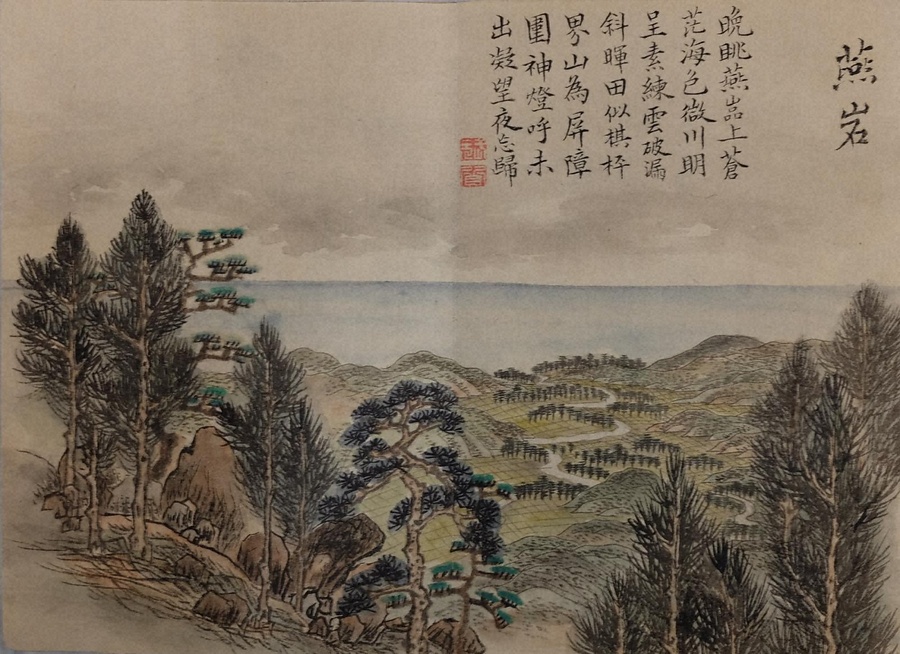 燕岩
晩眺燕嵓上蒼
茫海色微川明
呈素練雲破漏
斜暉田似棋枰
界山為屏障
圍神燈呼未
出凝望夜忘歸